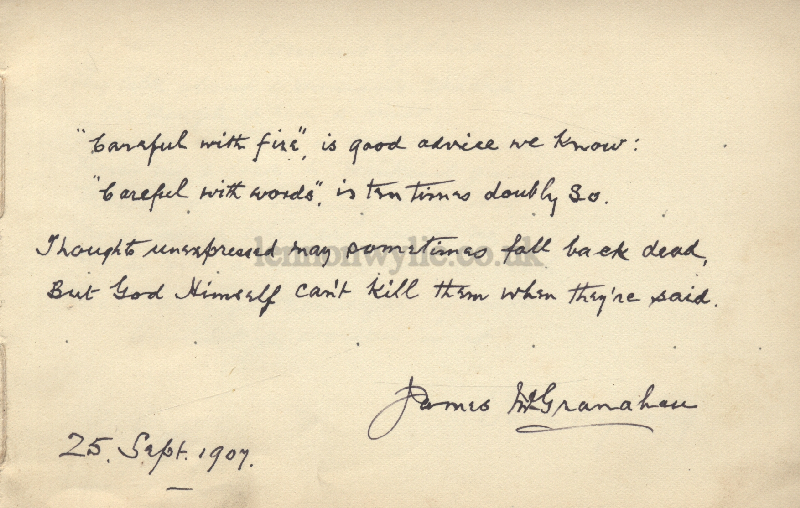 "Careful with fire", is good advice we know:
"Careful with words", is ten times doubly so.
Thoughts unexpressed may sometimes fall back dead,
lennonwylie.co.uk
But God Himself can't kill them when they're said.
James McGranahan
25. Sept. 1907.